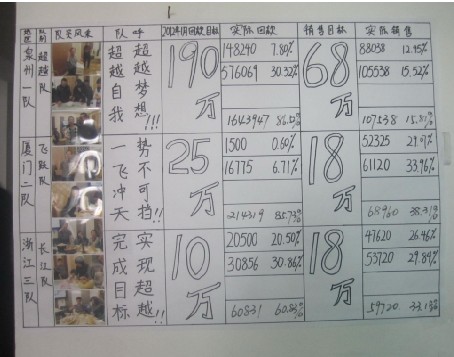 队员风采 队呼 2012年1月回款目标 实际回款 销售目标 实际销售
泉州一队 超越队 超越自我 超越梦想!!! 190万 68万
148240 7.80% 88038 12.95%
576069 30.32% 105538 15.52%
1643947 107538
厦门二队 飞跃队 一飞冲天 势不可挡!! 25万 18万
1500 0.60% 52325
16775 6.71% 61120 33.96%
214319 85.73% 68960 38.31%
浙江三队 长江队 完成目标 实现超越!! 10万 18万
20500 20.50% 47620 26.46%
30856 30.86% 53720 29.84%
60831 60.83% 59720